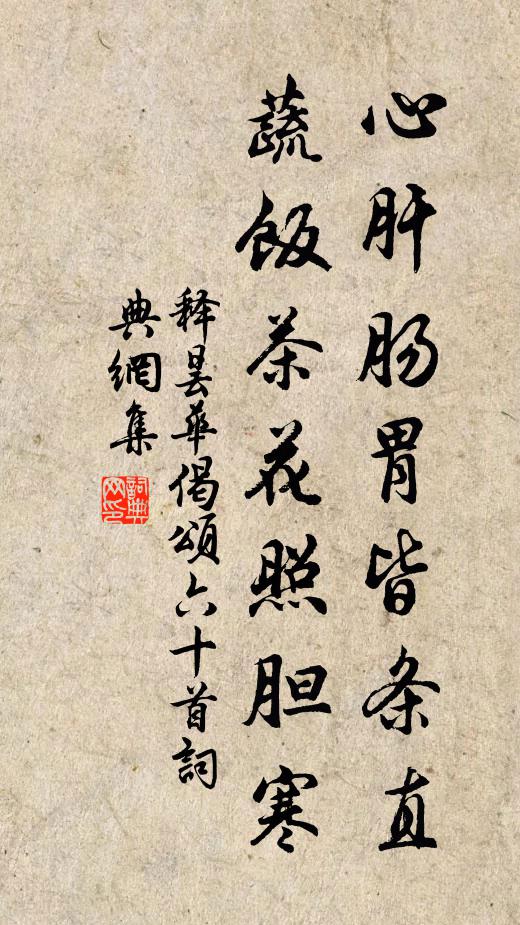 心肝肠胃皆条直
蔬飯茶花照胆寒
释昙華偈頌六十首詞
典網集
詞典网印